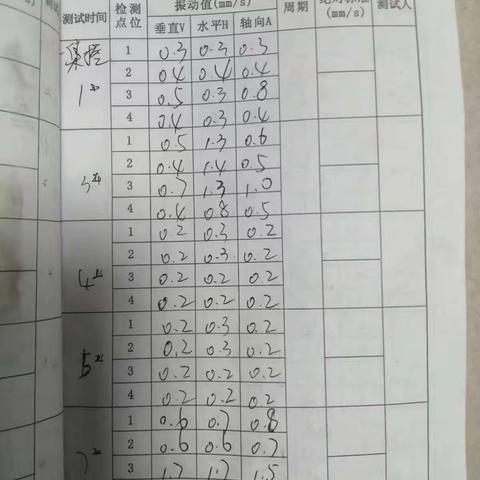 测试时间 检测点位 振动值(mm/s) 周期 绝对标准(mm/s) 测试人
垂直V 水平H 轴向A
集控 1# 1 0.3 0.3 0.3
2 0.4 0.4 0.4
3 0.5 0.3 0.8
4 0.4 0.3 0.4
3# 1 0.5 1.3 0.6
2 0.4 1.4 0.5
3 0.7 1.3 1.0
4 0.4 0.8 0.5
4# 1 0.2 0.3 0.2
2 0.2 0.3 0.2
3 0.2 0.2 0.2
4 0.2 0.2 0.2
5# 1 0.2 0.3 0.2
2 0.2 0.3 0.2
3 0.2 0.2 0.2
4 0.2 0.2 0.2
7# 1 0.6 0.7 0.8
2 0.6 0.6 0.7
3 1.7 1.7 1.5